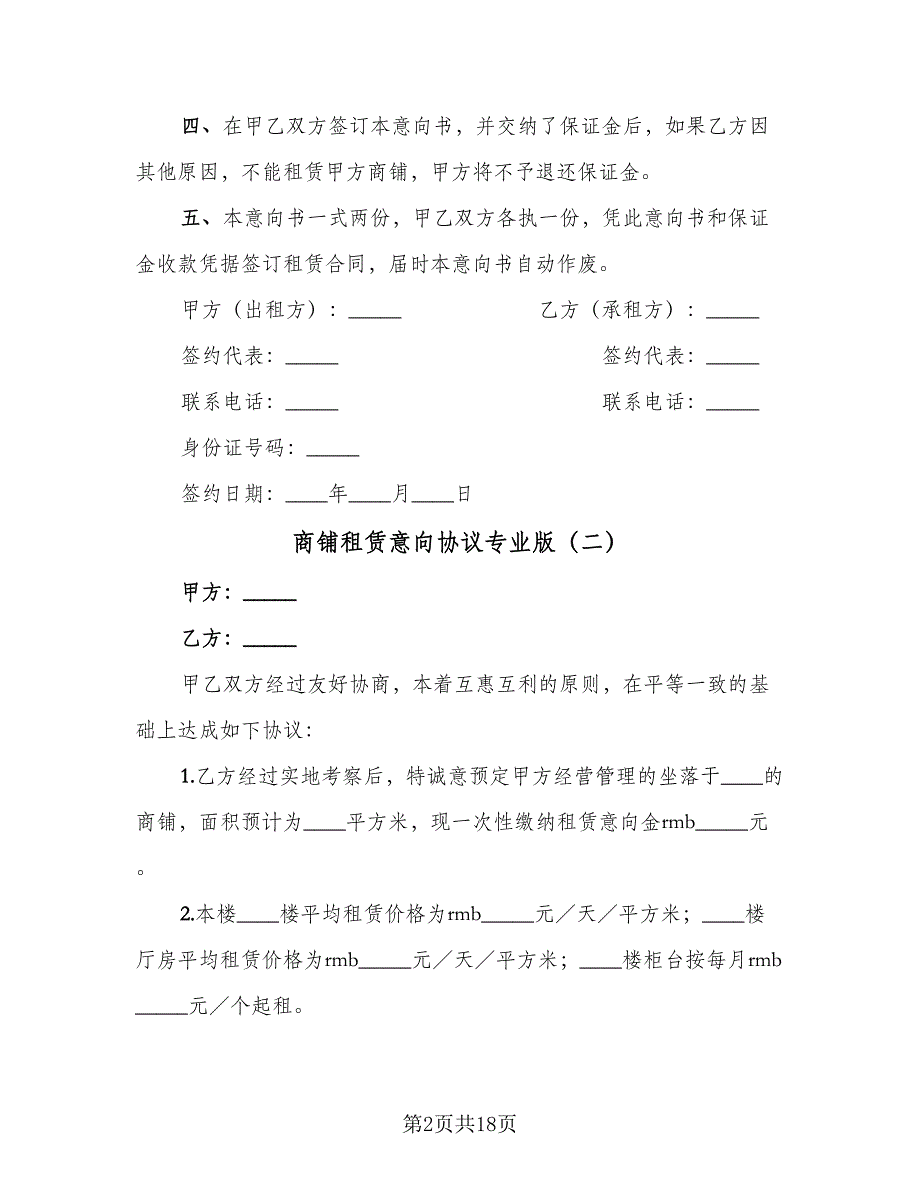 四、在甲乙双方签订本意向书，并交纳了保证金后，如果乙方因
其他原因，不能租赁甲方商铺，甲方将不予退还保证金。
五、本意向书一式两份，甲乙双方各执一份，凭此意向书和保证
金收款凭据签订租赁合同，届时本意向书自动作废。
甲方（出租方）：_____ 乙方（承租方）：_____
签约代表：_____ 签约代表：_____
联系电话：_____ 联系电话：_____
身份证号码：_____
签约日期：____年____月____日
商铺租赁意向协议专业版（二）
甲方：_____
乙方：_____
甲乙双方经过友好协商，本着互惠互利的原则，在平等一致的基
础上达成如下协议：
1.乙方经过实地考察后，特诚意预定甲方经营管理的坐落于____的
商铺，面积预计为____平方米，现一次性缴纳租赁意向金rmb_____元
。
2.本楼____楼平均租赁价格为rmb_____元／天／平方米；____楼
厅房平均租赁价格为rmb_____元／天／平方米；____楼柜台按每月rmb
_____元／个起租。
第2页共18页